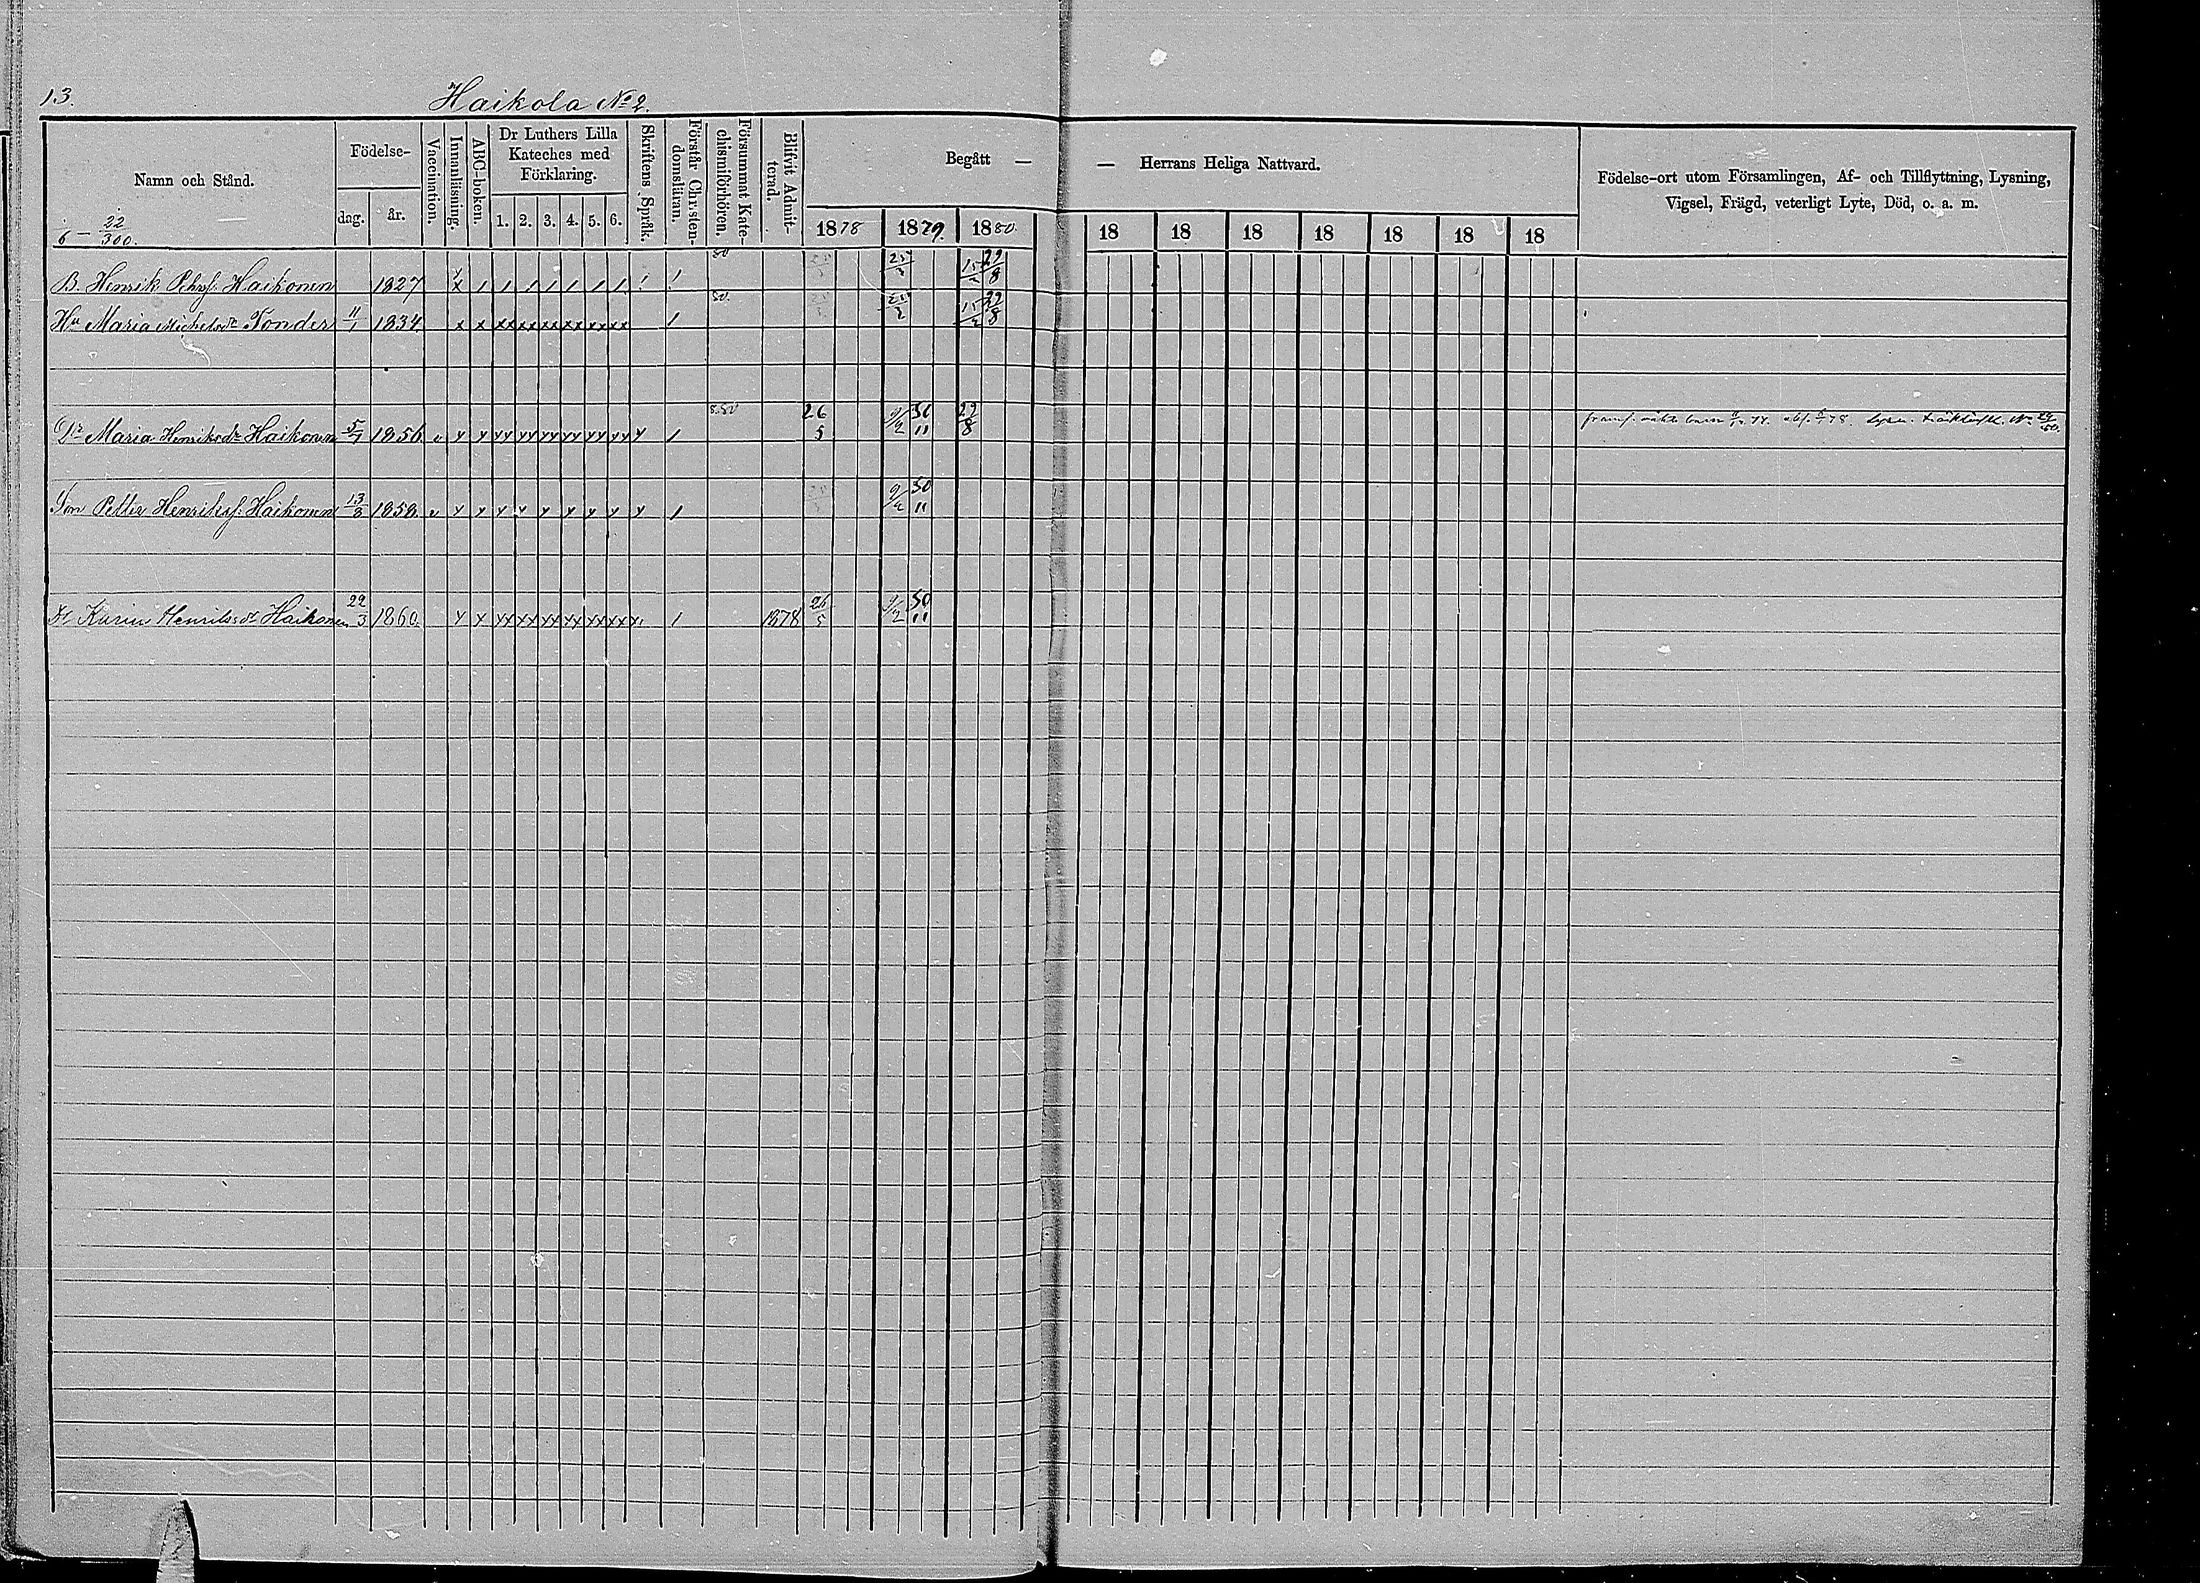 13.
Haikola No 2.
Namn och Stånd.
Födelse-
dag.
år.
Vaccination.
Innanläsning.
ABC-boken.
Dr Luthers Lilla
Kateches med
Förklaring.
1. 2. 3. 4. 5. 6.
Skriftens Språk.
Förstår Christen-
domsläran.
Försummat Kate-
chismiförhören.
Blifvit Admit-
terad.
Begått — — Herrans Heliga Nattvard.
1878 1879. 1880. 18 18 18 18 18 18 18
Födelse-ort utom Församlingen, Af- och Tillflyttning, Lysning,
Vigsel, Frägd, veterligt Lyte, Död, o. a. m.
6 — 22/300.
B. Henrik Pehrs. Haikonen 1827 / / / / / / / / ! ! 80 15/2 29/8
Hu Maria Michelsdr Tonder 11/1 1834 x x xx xx xx xx xx xx / 80. 15/2 29/8
Dr Maria Henriksdr Haikonen 5/7 1856 v x x xx xx xx xx xx xx x / 26/5 9/2 30/11 29/8
Son Petter Henriks. Haikonen 13/3 1858. v x x x x x x x x x / 9/2 30/11
Dr Karin Henriksdr Haikonen 22/3 1860. x x xx xx xx xx xx xx x / 1878 26/5 9/2 30/11